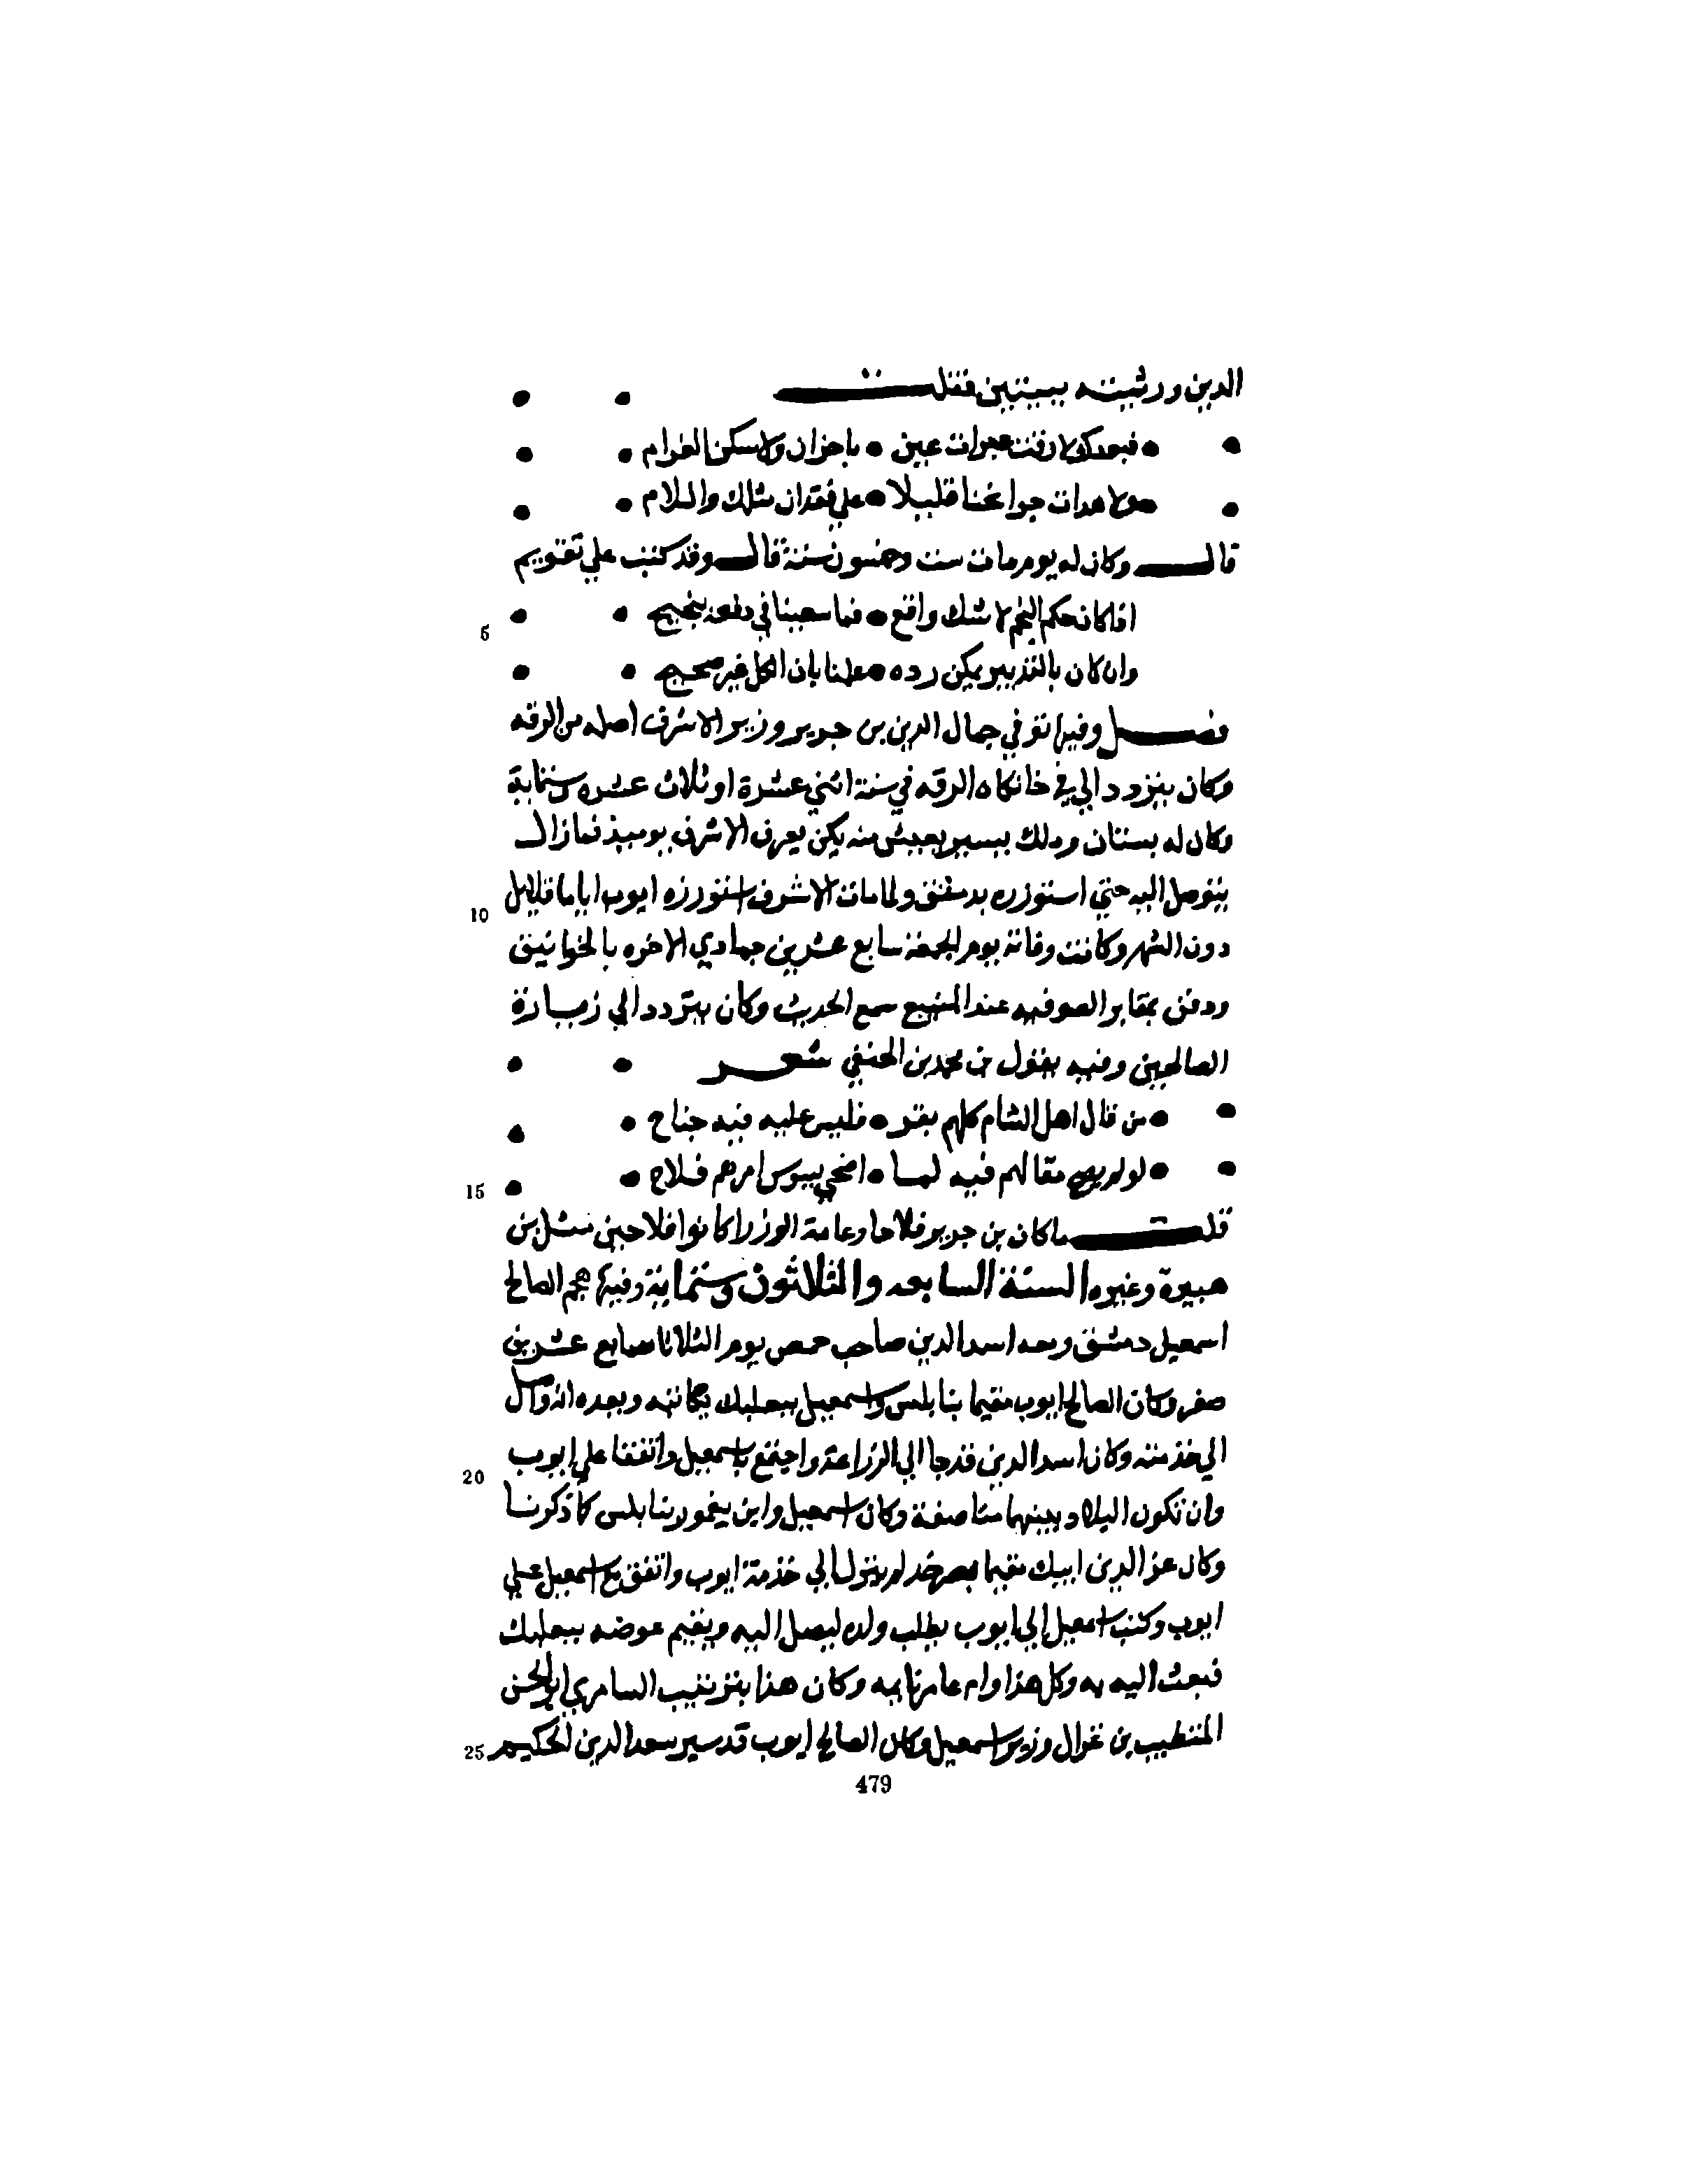 الدين ورثيته ببيتين فقلت
فبعدك لا رقت عبرات عين • باحزان ولا سكن الغرام
ولا هدات جوانحنا قليلا • علي فقدان مثلك والسلام
قال وكان له يوم مات ست وخمسون سنة قال وقد كتب علي تقويم
اذا كان حكم النجم لا شك واقع • فما سعينا في دفعه بنجيح
5
وان كان بالتدبير يمكن رده • علمنا بان الكل غير صحيح
فصل وفيها توفي جمال الدين بن جرير وزير الاشرف اصله من الرقه
وكان يتردد الي في خانكاه الرقه في سنة اثني عشرة او ثلاث عشره وستماية
وكان له بستان وملك يسير يعيش منه يكن يعرف الاشرف يوميذ فما زال
يتوصل اليه حتي استوزره بدمشق ولما مات الاشرف استوزره ايوب اياما قلايل
10
دون الشهر وكانت وفاته يوم الجمعة سابع عشرين جمادي الاخره بالخوانيق
ودفن بمقابر الصوفيه عند المنيبع سمع الحديث وكان يتردد الي زيارة
الصالحين وفيه يقول بن محمد بن الحنفي شعر
من قال اهل الشام كلهم بقر • فليس عليه فيه جناح
لو لم يصح مقالهم فيه لما • اضحي يسوس امرهم فلاح
15
قلت ما كان بن جرير فلاحا وعامة الوزرا كانوا فلاحين مثل بن
هبيرة وغيره السنة السابعه والثلاثون وستماية وفيها هجم الصالح
اسمعيل دمشق ومعه اسد الدين صاحب حمص يوم الثلاثا سابع عشرين
صفر وكان الصالح ايوب مقيما بنابلس واسمعيل ببعلبك يكاتبه ويعده انه واصل
الي خدمته وكان اسد الدين قد جا الي الزراعة واجتمع باسمعيل واتفقا علي ايوب
20
وان تكون البلاد بينهما مناصفة وكان اسمعيل وابن يغمور بنابلس كما ذكرنا
وكان عز الدين ايبك مقيما بصرخد لم ينزل الي خدمة ايوب واتفق مع اسمعيل علي
ايوب وكتب اسمعيل الي ايوب يطلب ولده ليصل اليه ويقيم عوضه ببعلبك
فبعث اليه به وكل هذا وام عامر نايمه وكان هذا بترتيب السامري ابو الحسن
المتطبب بن غزال وزير اسمعيل وكان الصالح ايوب قد سير سعد الدين الحكيم
25
479